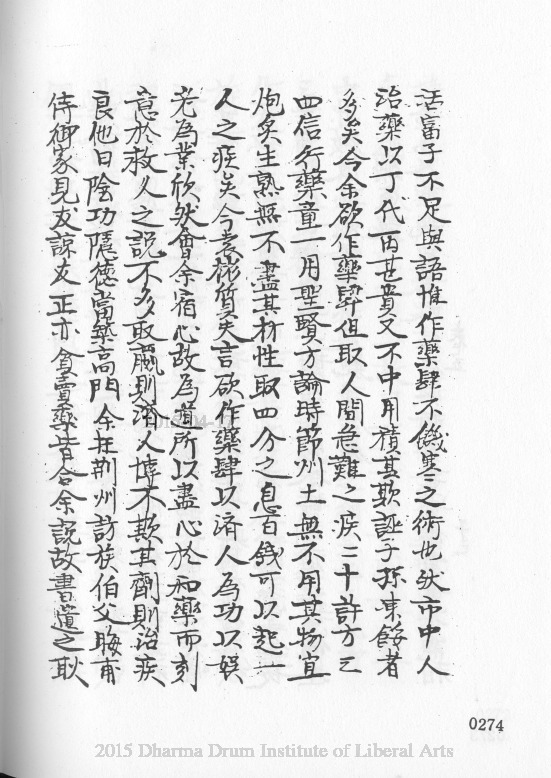 活富子不足與語惟作藥肆不饑寒之術也然市中人
治藥以丁代丙芘貴又不中用積其欺誣子孫凍餒者
多矣今余欲作藥肆但取人間急難之疾二十許方三
四信行藥童一用聖賢方論時節州土無不用其物宜
炮炙生熟無不盡其材性取四分之息百錢可以起一
人之疾矣今言欲作藥肆以济人為功以娛
老為業欣然會余宿心故為道所以盡心於和藥而刻
意於救人之說不多取贏則济人博不欺其劑則治疾
良他日陰功隱德當築高門余在荆州訪族伯父晦甫
侍御家見友諒友正亦貧賣藥皆合余說故書遺之耿
0274
2015 Dharma Drum Institute of Liberal Arts